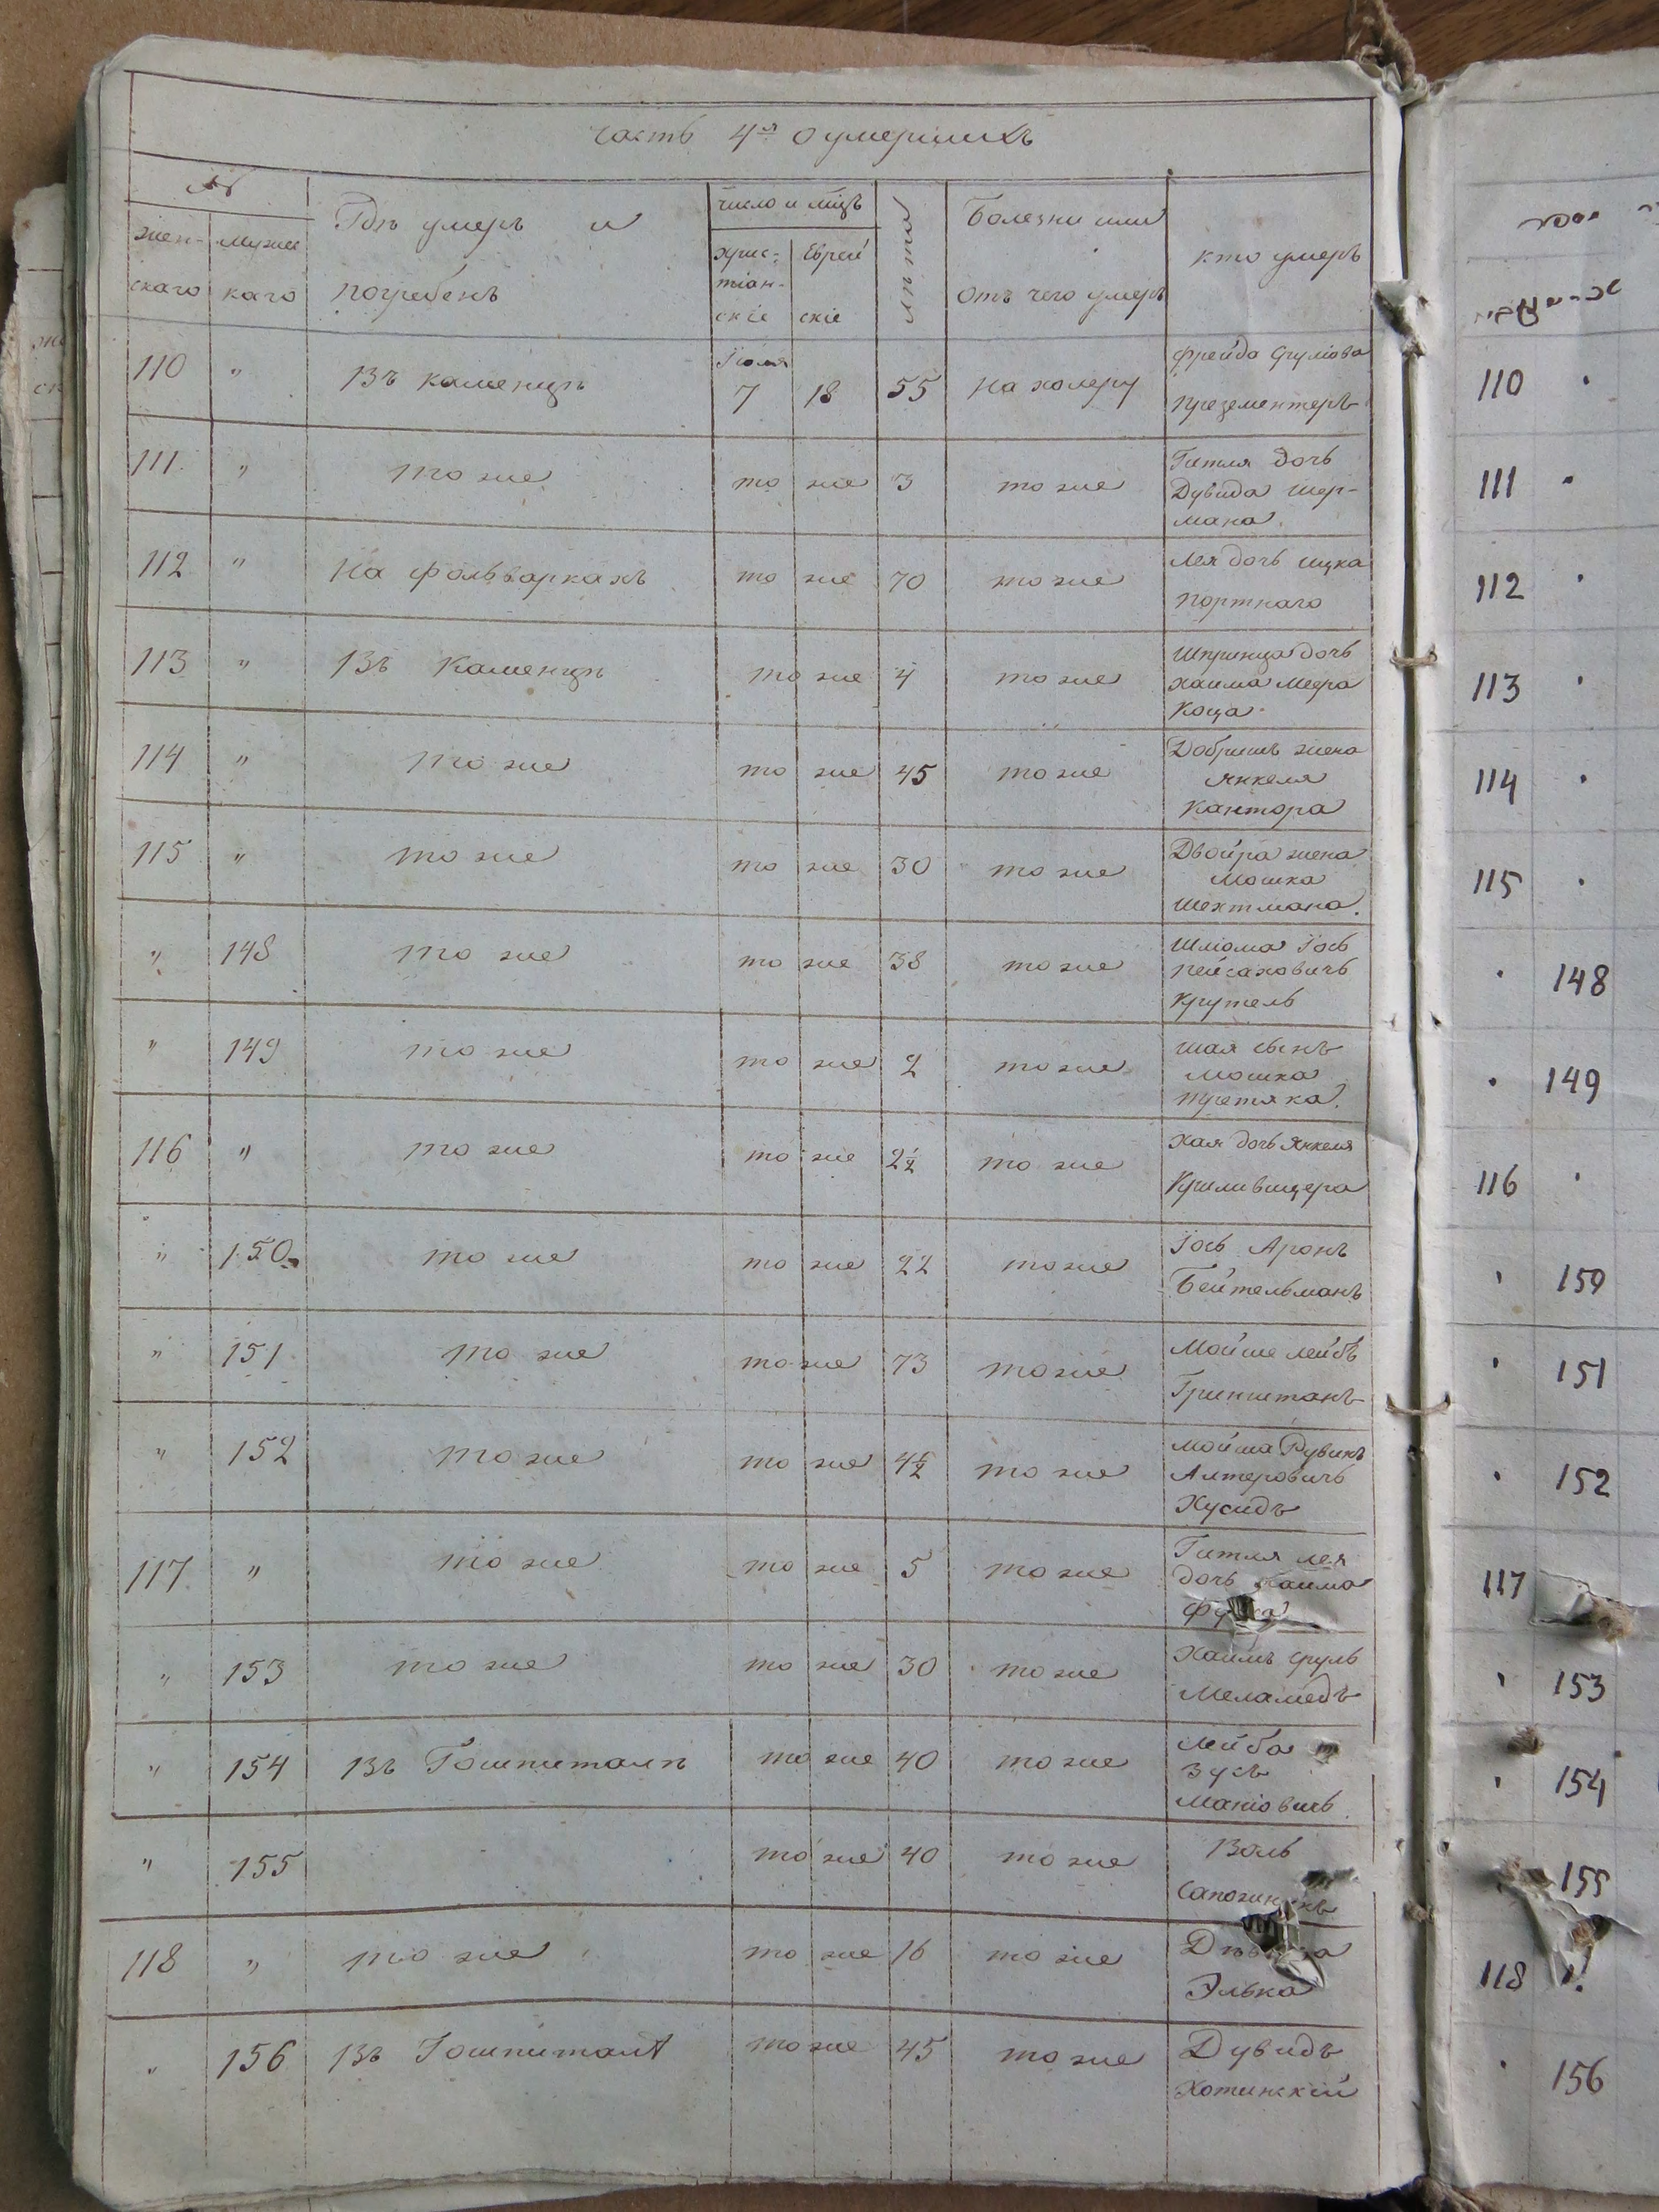 часть 4я о умершихъ
№
женскаго
мужескаго
Гдѣ умеръ и
погребенъ
число и мѣцъ
Христіанскіе
Еврейскіе
Лѣта
Болезни или
отъ чего умеръ
кто умеръ
110 " Въ каменцѣ Іюля 7 18 55 на холеру Фрейда Срулiова
презементеръ
111 " то же то же 3 то же Гитля дочь
Дувида Шер-
мана
112 " На фольваркахъ то же 70 то же Лея дочь Ицка
портнаго
113 " Въ Каменцѣ то же 4 то же Шпринца дочь
Хаима Меера
Коца
114 " то же то же 45 то же Добришъ жена
Янкеля
Кантора
115 " то же то же 30 то же Двойра жена
Мошка
Шехтмана.
" 148 то же то же 38 то же Шліома Іось
Пейсаховичъ
Крутель
" 149 то же то же 2 то же Шая сынъ
Мошка
116 " то же то же 2½ то же Хая дочь Янкеля
" 150 то же то же 22 то же Іось Аронъ
Бейтельманъ
" 151 то же то же 73 то же Мойше Лейбъ
" 152 то же то же 4½ то же Мойша Рувинъ
Алтеровичъ
Хусидъ
117 " то же то же 5 то же Гитля Лея
дочь Хаима
" 153 то же то же 30 то же Хаимъ Сруль
Меламедъ
" 154 Въ Гошпиталѣ то же 40 то же Лейба
Зусь
Маніовичъ.
" 155 то же 40 то же Волъ
118 " то же то же 16 то же
Элька
" 156 Въ Гошпиталѣ то же 45 то же Дувидъ
Хотинскій
110
111
112
113
114
115
148
149
116
150
151
152
117
153
154
155
118
156